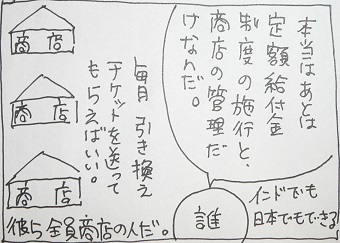 本当はあとは
定額給付金
制度の施行と、
商店の管理だ
けなんだ。
毎月 引き換え
チケットを送って
もらえばいい。
商店
商店
商店
誰
インドでも
日本でもできる
彼ら全員商店の人だ。